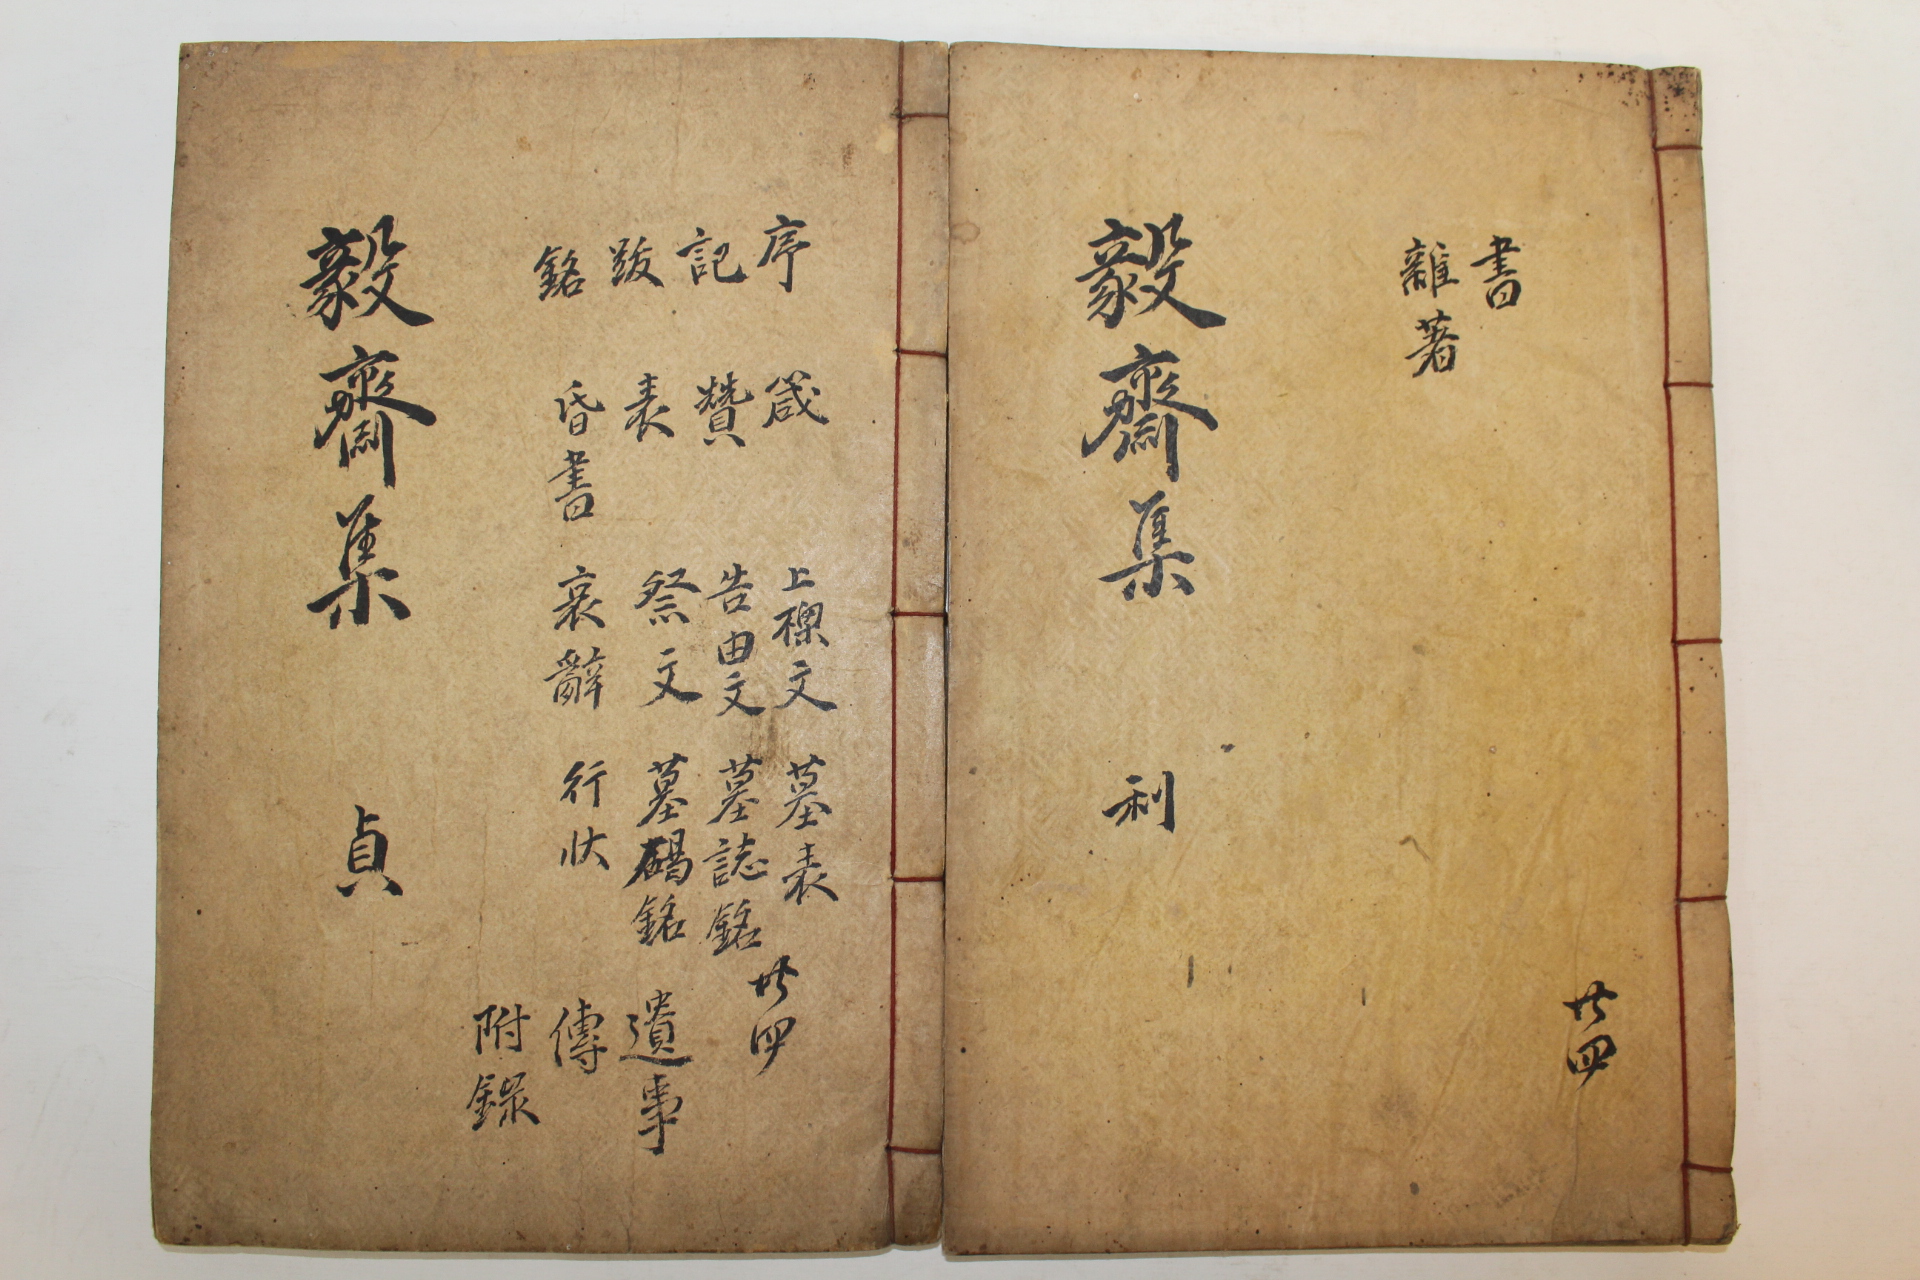 書
雜著
共四
毅齋集 利
序 箴 上樑文 墓表
記 贊 告由文 墓誌銘
跋 表 祭文 墓碣銘 遺事
銘 昏書 哀辭 行狀 傳
附錄
共四
毅齋集 貞